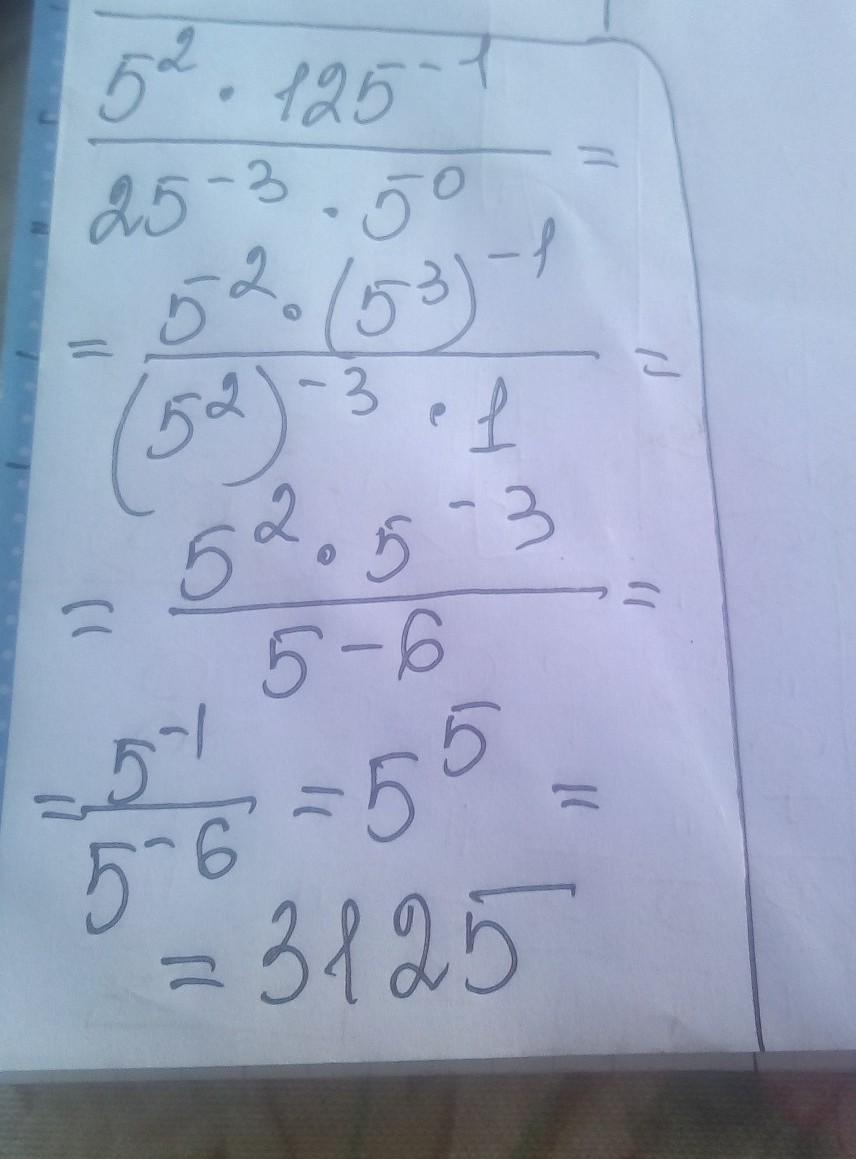 5² · 125⁻¹
25⁻³ · 5⁰ =
= 5² · (5³)⁻¹
(5²)⁻³ · 1 =
= 5² · 5⁻³
5-6 =
= 5⁻¹
5⁻⁶ = 5⁵ =
= 3125